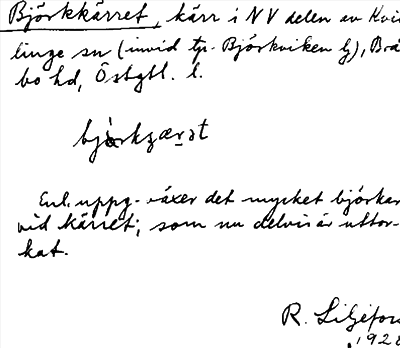 Björkkärret, kärr i NV delen av Kvil
linge sn (invid tp. Björkviken lj), Brå
bo hd, Östgtl. l.
Enl. uppg. växer det mycket björkar
vid kärret; som nu delvis är uttor-
kat.
R. Liljefors
1928